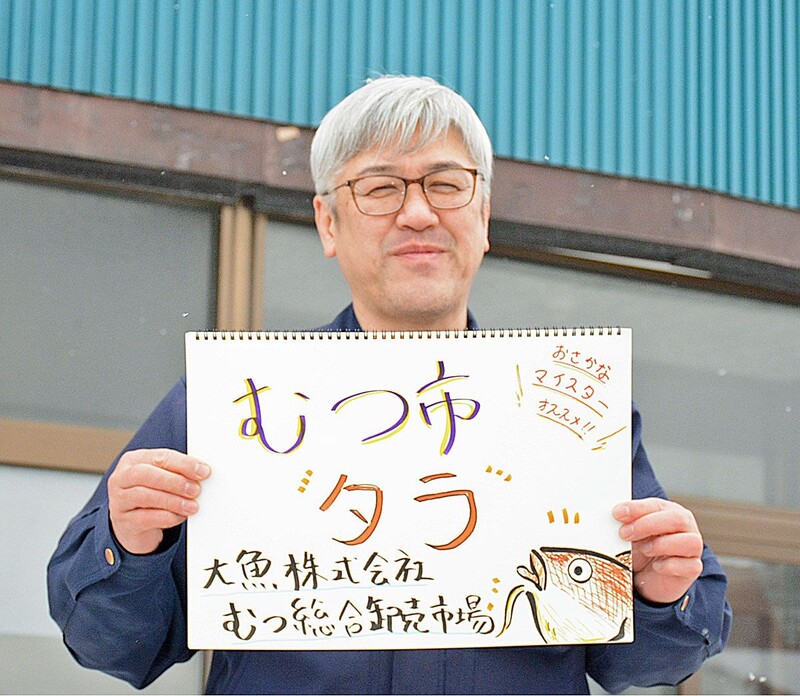 おさかな
マイスター
オススメ!!
むつ市
"タラ"
大魚株式会社
むつ総合卸売市場